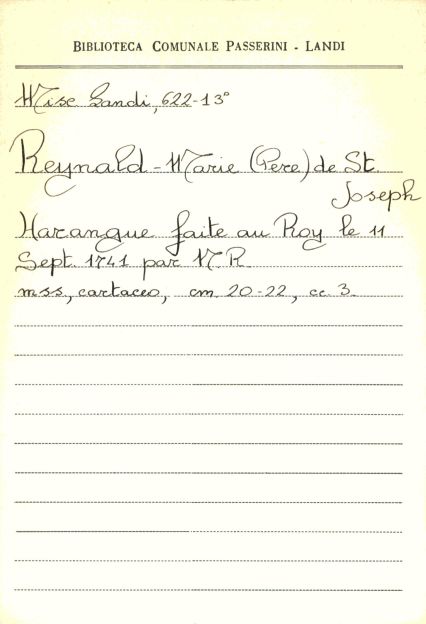 BIBLIOTECA COMUNALE PASSERINI - LANDI
Misc Landi, 622-13°
Reynald - Marie (Pere) de St.
Joseph
Harangue faite au Roy le 11
Sept. 1741 par M. R.
mss, cartaceo, cm. 20-22, cc. 3.